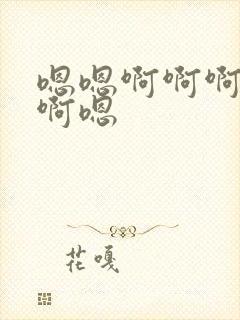 嗯嗯啊啊啊
啊嗯
花嘎